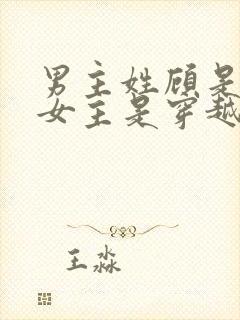 男主姓顾是
女主是穿越
王淼